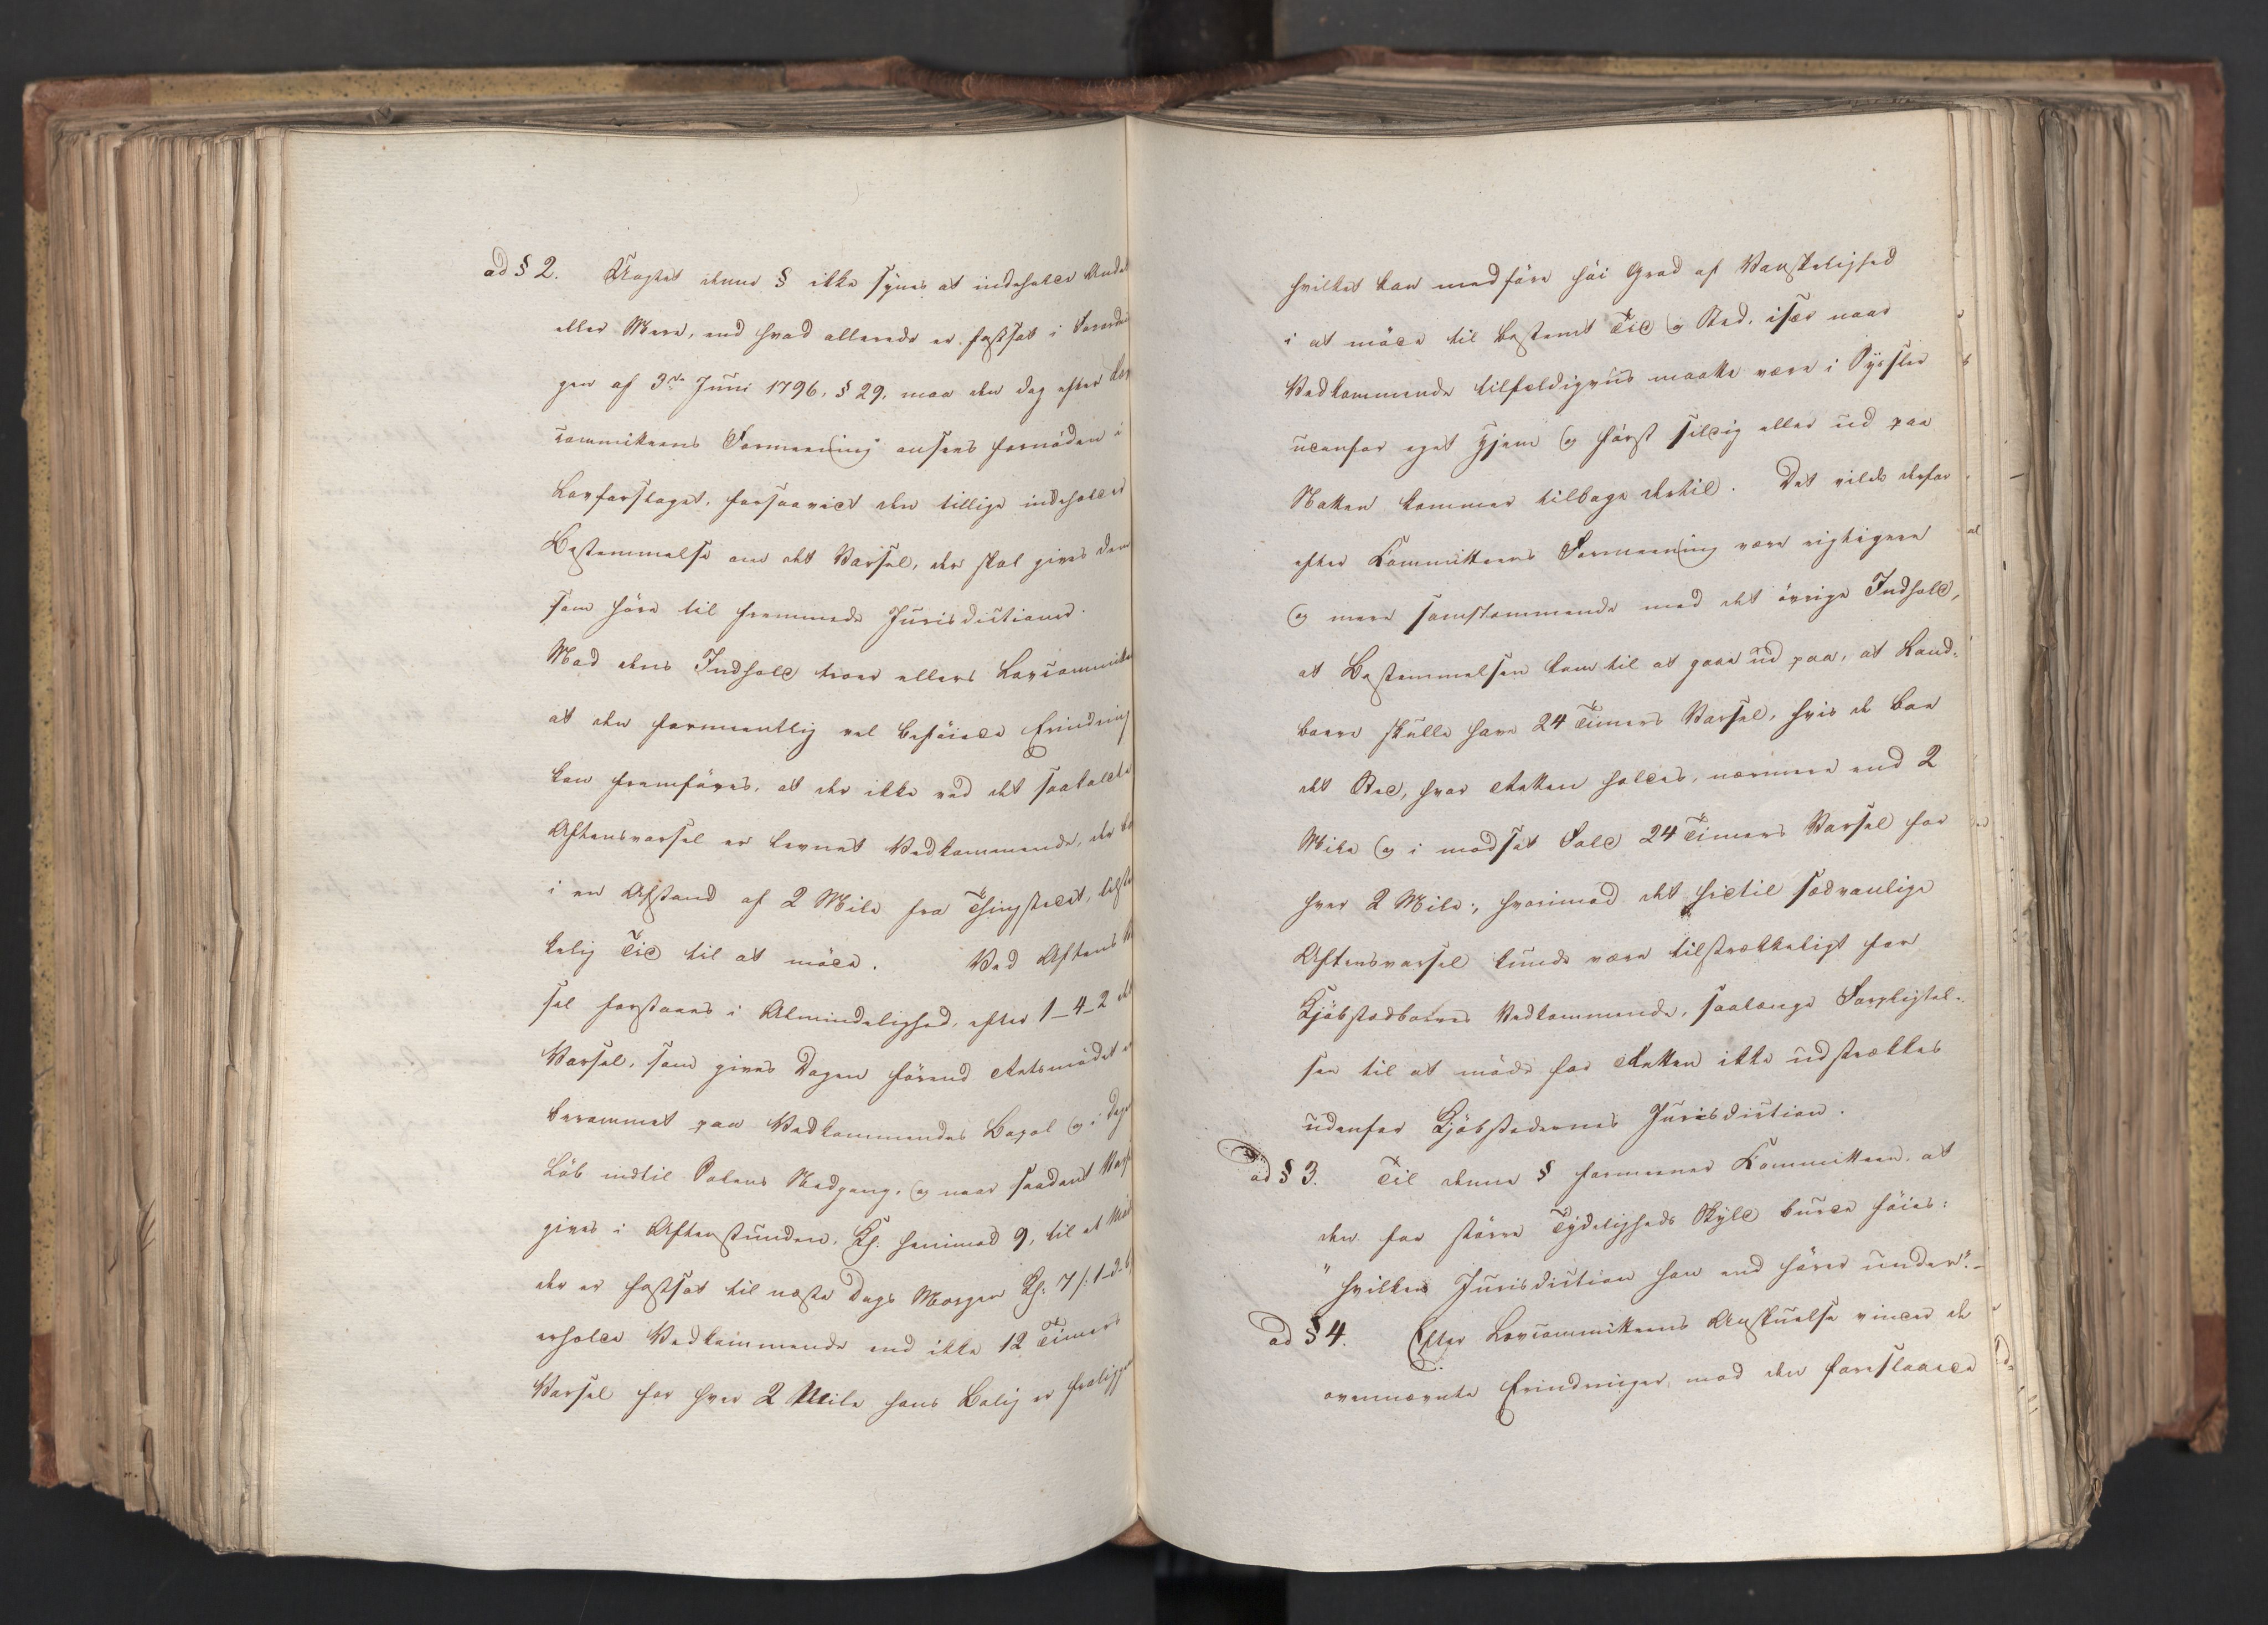 ad § 2. Uagtet denne § ikke synes at indeholde Andet
eller Mere, end hvad allerede er fastsat i Forordnin
gen af 3die Juni 1796, § 29, maa den dog efter Lov
committeens Formeening ansees fornöden i
Lovforslaget, forsaavidt den tillige indeholder
Bestemmelse om det Varsel, der skal gives dem
som höre til fremmede Jurisdictioner.
Mod dens Indhold troer ellers Lovcommitte
at den formeentlig vel beföiede Erindring
kan fremföres, at der ikke ved det saakaldte
Aftensvarsel er levnet Vedkommende, der bo
i en Afstand af 2 Mile fra Thingstedet, tilstræ
kelig Tid til at möde. Ved Aftens
sel forstaaes i Almindelighed, efter 1-4-2 det
Varsel, som gives Dagen förend Retsmödet er
berammet paa Vedkommendes Bopæl og i Dagens
Löb indtil Solens Nedgang, og naar saadant Varsel
gives i Aftenstunden, Kl. henimod 9, til et Möde
der er fastsat til næste Dags Morgen Kl. 7
erholde Vedkommende end ikke 12 Timers
Varsel for hver 2 Mile hans Bolig er fraliggen
hvilket kan medföre höi Grad af Vanskelighed
i at möde til bestemt Tid og Sted, især naar
Vedkommende tilfældigviis maatte være i Sysler
udenfor eget Hjem og först sildig eller ud paa
Natten kommer tilbage dertil. Det vilde derfor
efter Committeens Formeening være rigtigere
og mere samstemmende med det övrige Indhold,
at Bestemmelsen kom til at gaae ud paa, at Land-
boere skulle have 24 Timers Varsel, hvis de boe
det Sted, hvor Retten holdes, nærmere end 2
Mile og i modsat Fald 24 Timers Varsel for
hver 2 Mile; hvorimod det hidtil sædvanlige
Aftensvarsel kunde være tilstrækkeligt for
Kjöbstadboeres Vedkommende, saalænge Forpligtel-
sen til at möde for Retten ikke udstrækkes
udenfor Kjöbstædernes Jurisdiction.
ad § 3. Til denne § formener Committeen, at
der for större Tydeligheds Skyld burde föies:
"hvilken Jurisdiction han end hörer under".-
ad § 4. Efter Lovcommitteens Anskuelse vinder de
ovennævnte Erindringer mod den foreslaaede